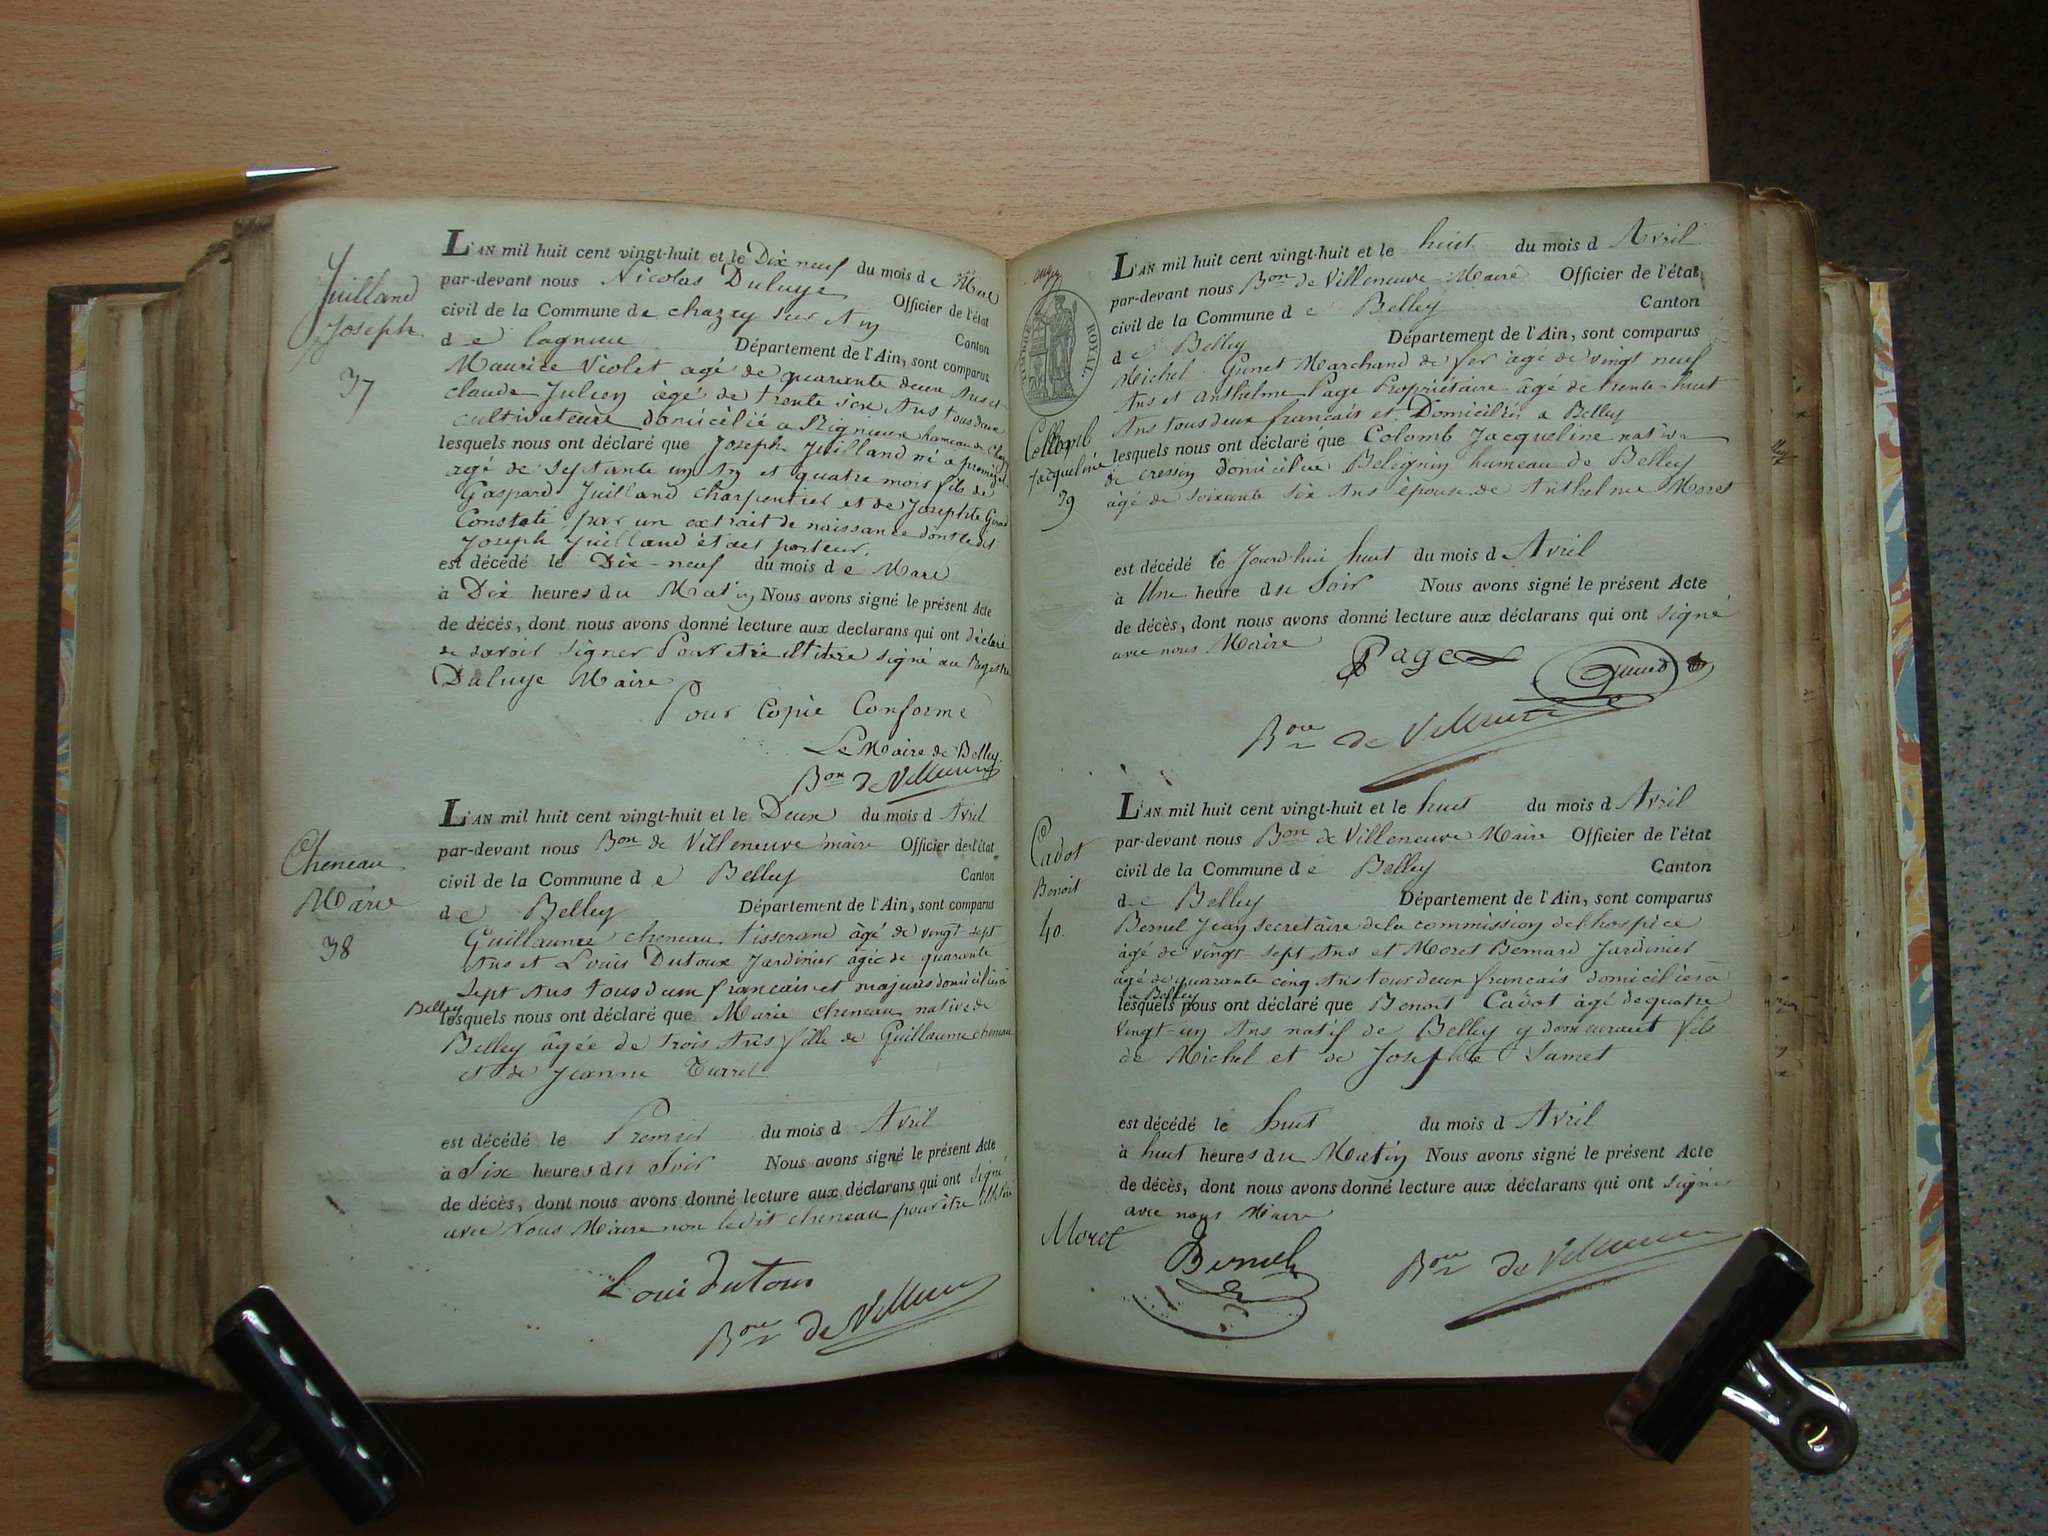 Juilland
Joseph
37
L'AN mil huit cent vingt-huit et le Dix neuf du mois de
par-devant nous Nicolas Duluye Officier de l'état
civil de la Commune de chazey sur Ain Canton
de lagnieu Département de l'Ain, sont comparus
Maurice Violet agé de quarante deux Ans et
claude Julien âgé de trente six Ans tous deux
cultivateurs domicilié a Rignieux hameau de
lesquels nous ont déclaré que Joseph Juilland né a
agé de septante un An et quatre mois fils de
Gaspard Juilland charpentier et de Josephte
Constaté par un extrait de naissance dont ledit
Joseph Juilland était porteur.
est décédé le Dix-neuf du mois de Mars
à Dix heures du Matin Nous avons signé le présent Acte
de décés, dont nous avons donné lecture aux declarans qui ont déclaré
ne savoir signer Pour etre illitere signé au Registre
Duluye Maire
Pour Copie Conforme
Le Maire de Belley.
Bon de Villeneuve
Cheneau
Marie
38
L'AN mil huit cent vingt-huit et le Deux du mois d Avril
par-devant nous Bon de Villeneuve maire Officier de l'état
civil de la Commune de Belley Canton
de Belley Département de l'Ain, sont comparus
Guillaume cheneau tisserand âgé de vingt-sept
Ans et Louis Dutoux Jardinier âgée de quarante
sept Ans tous deux francais et majeurs domiciliés à
Belley lesquels nous ont déclaré que Marie cheneau native de
Belley âgée de trois Ans fille de Guillaume cheneau
et de Jeanne Turrel
est décédé le Premier du mois d Avril
à Six heures du Soir Nous avons signé le présent Acte
de décés, dont nous avons donné lecture aux déclarans qui ont signé
avec Nous Maire non ledit cheneau pour être
Loui dutour
Bon de Villeneuve
TIMBRE ROYAL.
Jacqueline
39
L'AN mil huit cent vingt-huit et le huit du mois d Avril
par-devant nous Bon de Villeneuve Maire Officier de l'état
civil de la Commune de Belley Canton
de Belley Département de l'Ain, sont comparus
Michel Marchand de fer âgé de vingt neuf
Ans et Anthelme Page Propriétaire âgé de trente-huit
Ans tous deux francais et Domiciliés a Belley
lesquels nous ont déclaré que Colomb Jacqueline native
de cressin domiciliée Belignin hameau de Belley
âgé de soixante six Ans épouse de Anthelme Moret
est décédé le Jourd'hui huit du mois d Avril
à Une heure du Soir Nous avons signé le présent Acte
de décès, dont nous avons donné lecture aux déclarans qui ont signé
avec nous Maire
Page
Bon de Villeneuve
Cadot
Benoit
40.
L'AN mil huit cent vingt-huit et le huit du mois d Avril
par-devant nous Bon de Villeneuve Maire Officier de l'état
civil de la Commune de Belley Canton
de Belley Département de l'Ain, sont comparus
Bernel Jean secretaire de la commission de l'hospice
âgé de vingt-sept Ans et Moret Bernard Jardinier
âgé de quarante cinq Ans tous deux francais domiciliés à
a Belley
lesquels nous ont déclaré que Benoit Cadot âgé de quatre
vingt-un Ans natif de Belley y demeurant fils
de Michel et de Josephte Samet
est décédé le huit du mois d Avril
à huit heures du Matin Nous avons signé le présent Acte
de décès, dont nous avons donné lecture aux déclarans qui ont signé
avec nous Maire
Moret
Bernel
Bon de Villeneuve